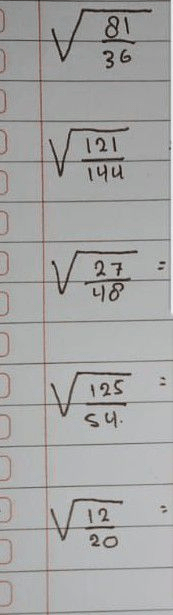 √81/36
√121/144
√27/48 =
√125/54. =
√12/20 =